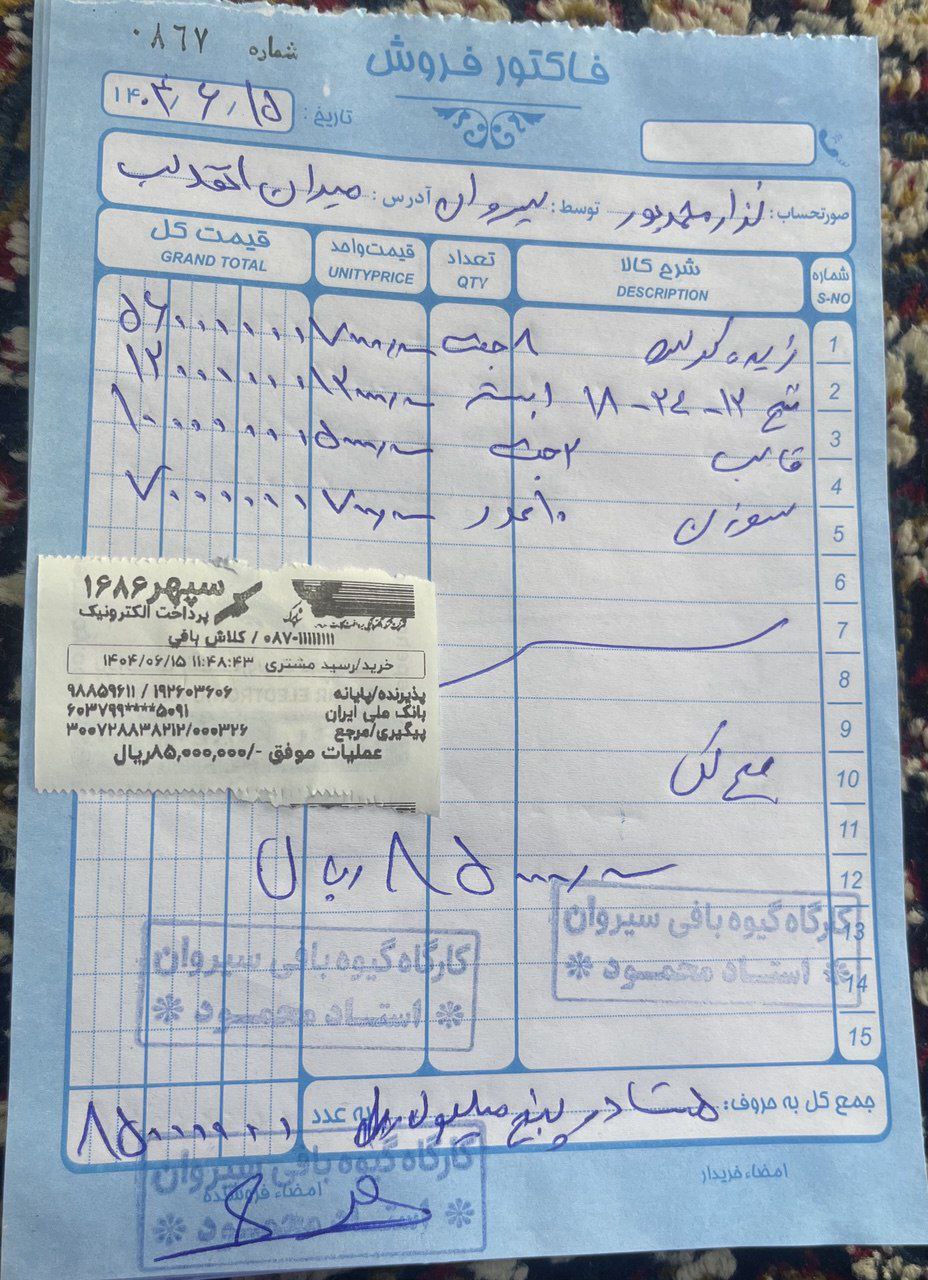 فاکتور فروش
شماره ۰۸۶۷
تاریخ: ۱۴۰۴/۶/۱۵
صورتحساب: نزار محمدپور توسط: سیروان آدرس: میدان انقلاب
شماره S-NO شرح کالا DESCRIPTION تعداد QTY قیمت واحد UNITYPRICE قیمت کل GRAND TOTAL
1 ۸ جفت ۷۰۰۰۰۰۰ ۵۶۰۰۰۰۰۰
2 نخ ۱۲-۲۴-۱۸ ۱ بسته ۱۲۰۰۰۰۰۰ ۱۲۰۰۰۰۰۰
3 قالب ۲ جفت ۵۰۰۰۰۰۰ ۱۰۰۰۰۰۰۰
4 سوزن ۱۰ عدد ۷۰۰۰۰۰ ۷۰۰۰۰۰۰
5
6
7
8
9
10
11
12
13
14
15
سپهر ۱۶۸۶
پرداخت الکترونیک
۰۸۷-۱۱۱۱۱۱۱۱ / کلاش بافی
خرید/رسید مشتری ۱۴۰۴/۰۶/۱۵ ۱۱:۴۸:۴۳
پذیرنده/پایانه ۱۹۲۶۰۳۶۰۶ / ۹۸۸۵۹۶۱۱
بانک ملی ایران ۶۰۳۷۹۹****۵۰۹۱
پیگیری/مرجع ۰۰۰۳۲۶/۳۰۰۷۲۸۸۳۸۲۱۲
عملیات موفق -/۸۵,۰۰۰,۰۰۰ریال
جمع کل
۸۵۰۰۰۰۰۰ ریال
کارگاه گیوه بافی سیروان
استاد محمود
کارگاه گیوه بافی سیروان
استاد محمود
جمع کل به حروف: هشتاد و پنج میلیون ریال به عدد ۸۵۰۰۰۰۰۰
امضاء خریدار
امضاء فروشنده
کارگاه گیوه بافی سیروان
استاد محمود